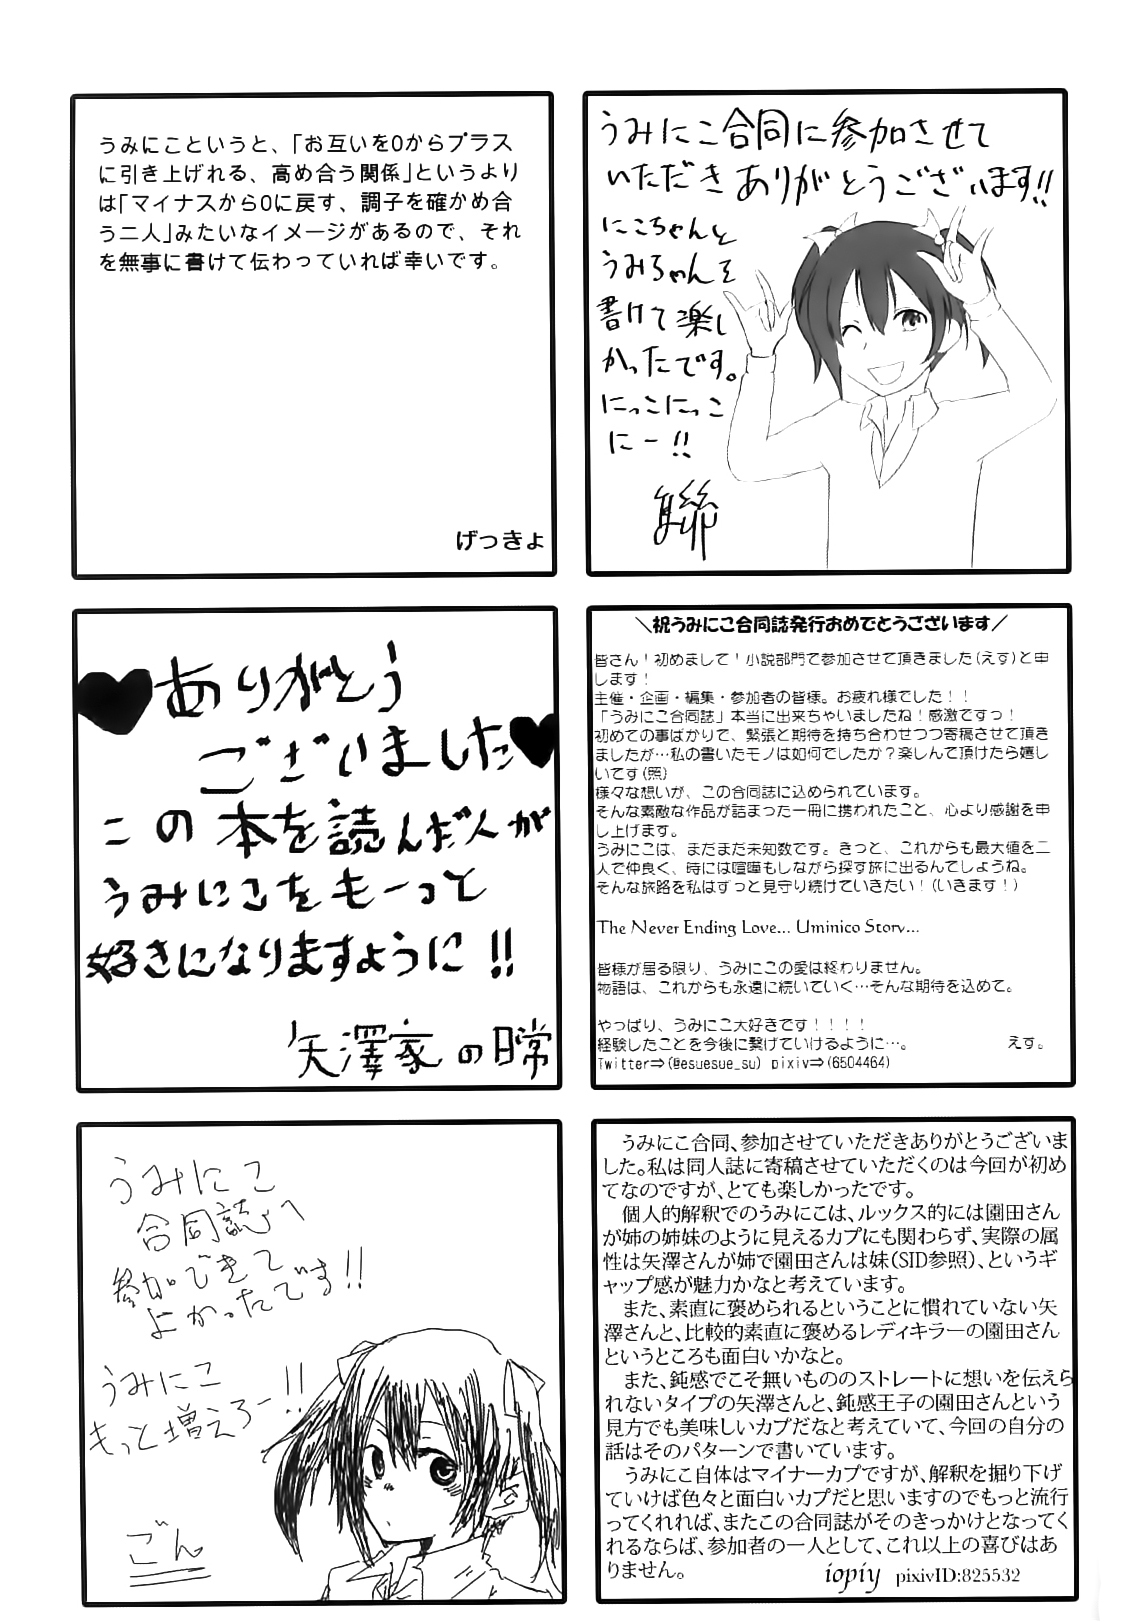 うみにこというと、「お互いを0からプラス
に引き上げれる、高め合う関係」というより
は「マイナスから0に戻す、調子を確かめ合
う二人」みたいなイメージがあるので、それ
を無事に書けて伝わっていれば幸いです。
げっきょ
うみにこ合同に参加させて
いただきありがとうございます!!
にこちゃんと
うみちゃんを
書けて楽し
かったです。
にっこにっこ
にー!!
♥ありがとう
ございました♥
この本を読んだ人が
うみにこをもーっと
好きになりますように!!
矢澤家の日常
＼祝うみにこ合同誌発行おめでとうございます／
皆さん!初めまして!小説部門で参加させて頂きました(えす)と申
します!
主催・企画・編集・参加者の皆様。お疲れ様でした!!
「うみにこ合同誌」本当に出来ちゃいましたね!感激ですっ!
初めての事ばかりで、緊張と期待を持ち合わせつつ寄稿させて頂き
ましたが…私の書いたモノは如何でしたか?楽しんで頂けたら嬉し
いです(照)
様々な想いが、この合同誌に込められています。
そんな素敵な作品が詰まった一冊に携われたこと、心より感謝を申
し上げます。
うみにこは、まだまだ未知数です。きっと、これからも最大値を二
人で仲良く、時には喧嘩もしながら探す旅に出るんでしょうね。
そんな旅路を私はずっと見守り続けていきたい!(いきます!)
The Never Ending Love... Uminico Story...
皆様が居る限り、うみにこの愛は終わりません。
物語は、これからも永遠に続いていく…そんな期待を込めて。
やっぱり、うみにこ大好きです!!!!
経験したことを今後に繋げていけるように…。 えす。
Twitter⇒(@esuesue_su) pixiv⇒(6504464)
うみにこ
合同誌へ
参加できて
よかったです!!
うみにこ
もっと増えろー!!
ごん
うみにこ合同、参加させていただきありがとうございま
した。私は同人誌に寄稿させていただくのは今回が初め
てなのですが、とても楽しかったです。
個人的解釈でのうみにこは、ルックス的には園田さん
が姉の姉妹のように見えるカプにも関わらず、実際の属
性は矢澤さんが姉で園田さんは妹(SID参照)、というギ
ャップ感が魅力かなと考えています。
また、素直に褒められるということに慣れていない矢
澤さんと、比較的素直に褒めるレディキラーの園田さん
というところも面白いかなと。
また、鈍感でこそ無いもののストレートに想いを伝えら
れないタイプの矢澤さんと、鈍感王子の園田さんという
見方でも美味しいカプだなと考えていて、今回の自分の
話はそのパターンで書いています。
うみにこ自体はマイナーカプですが、解釈を掘り下げ
ていけば色々と面白いカプだと思いますのでもっと流行
ってくれれば、またこの合同誌がそのきっかけとなってく
れるならば、参加者の一人として、これ以上の喜びはあ
りません。
iopiy pixivID:825532